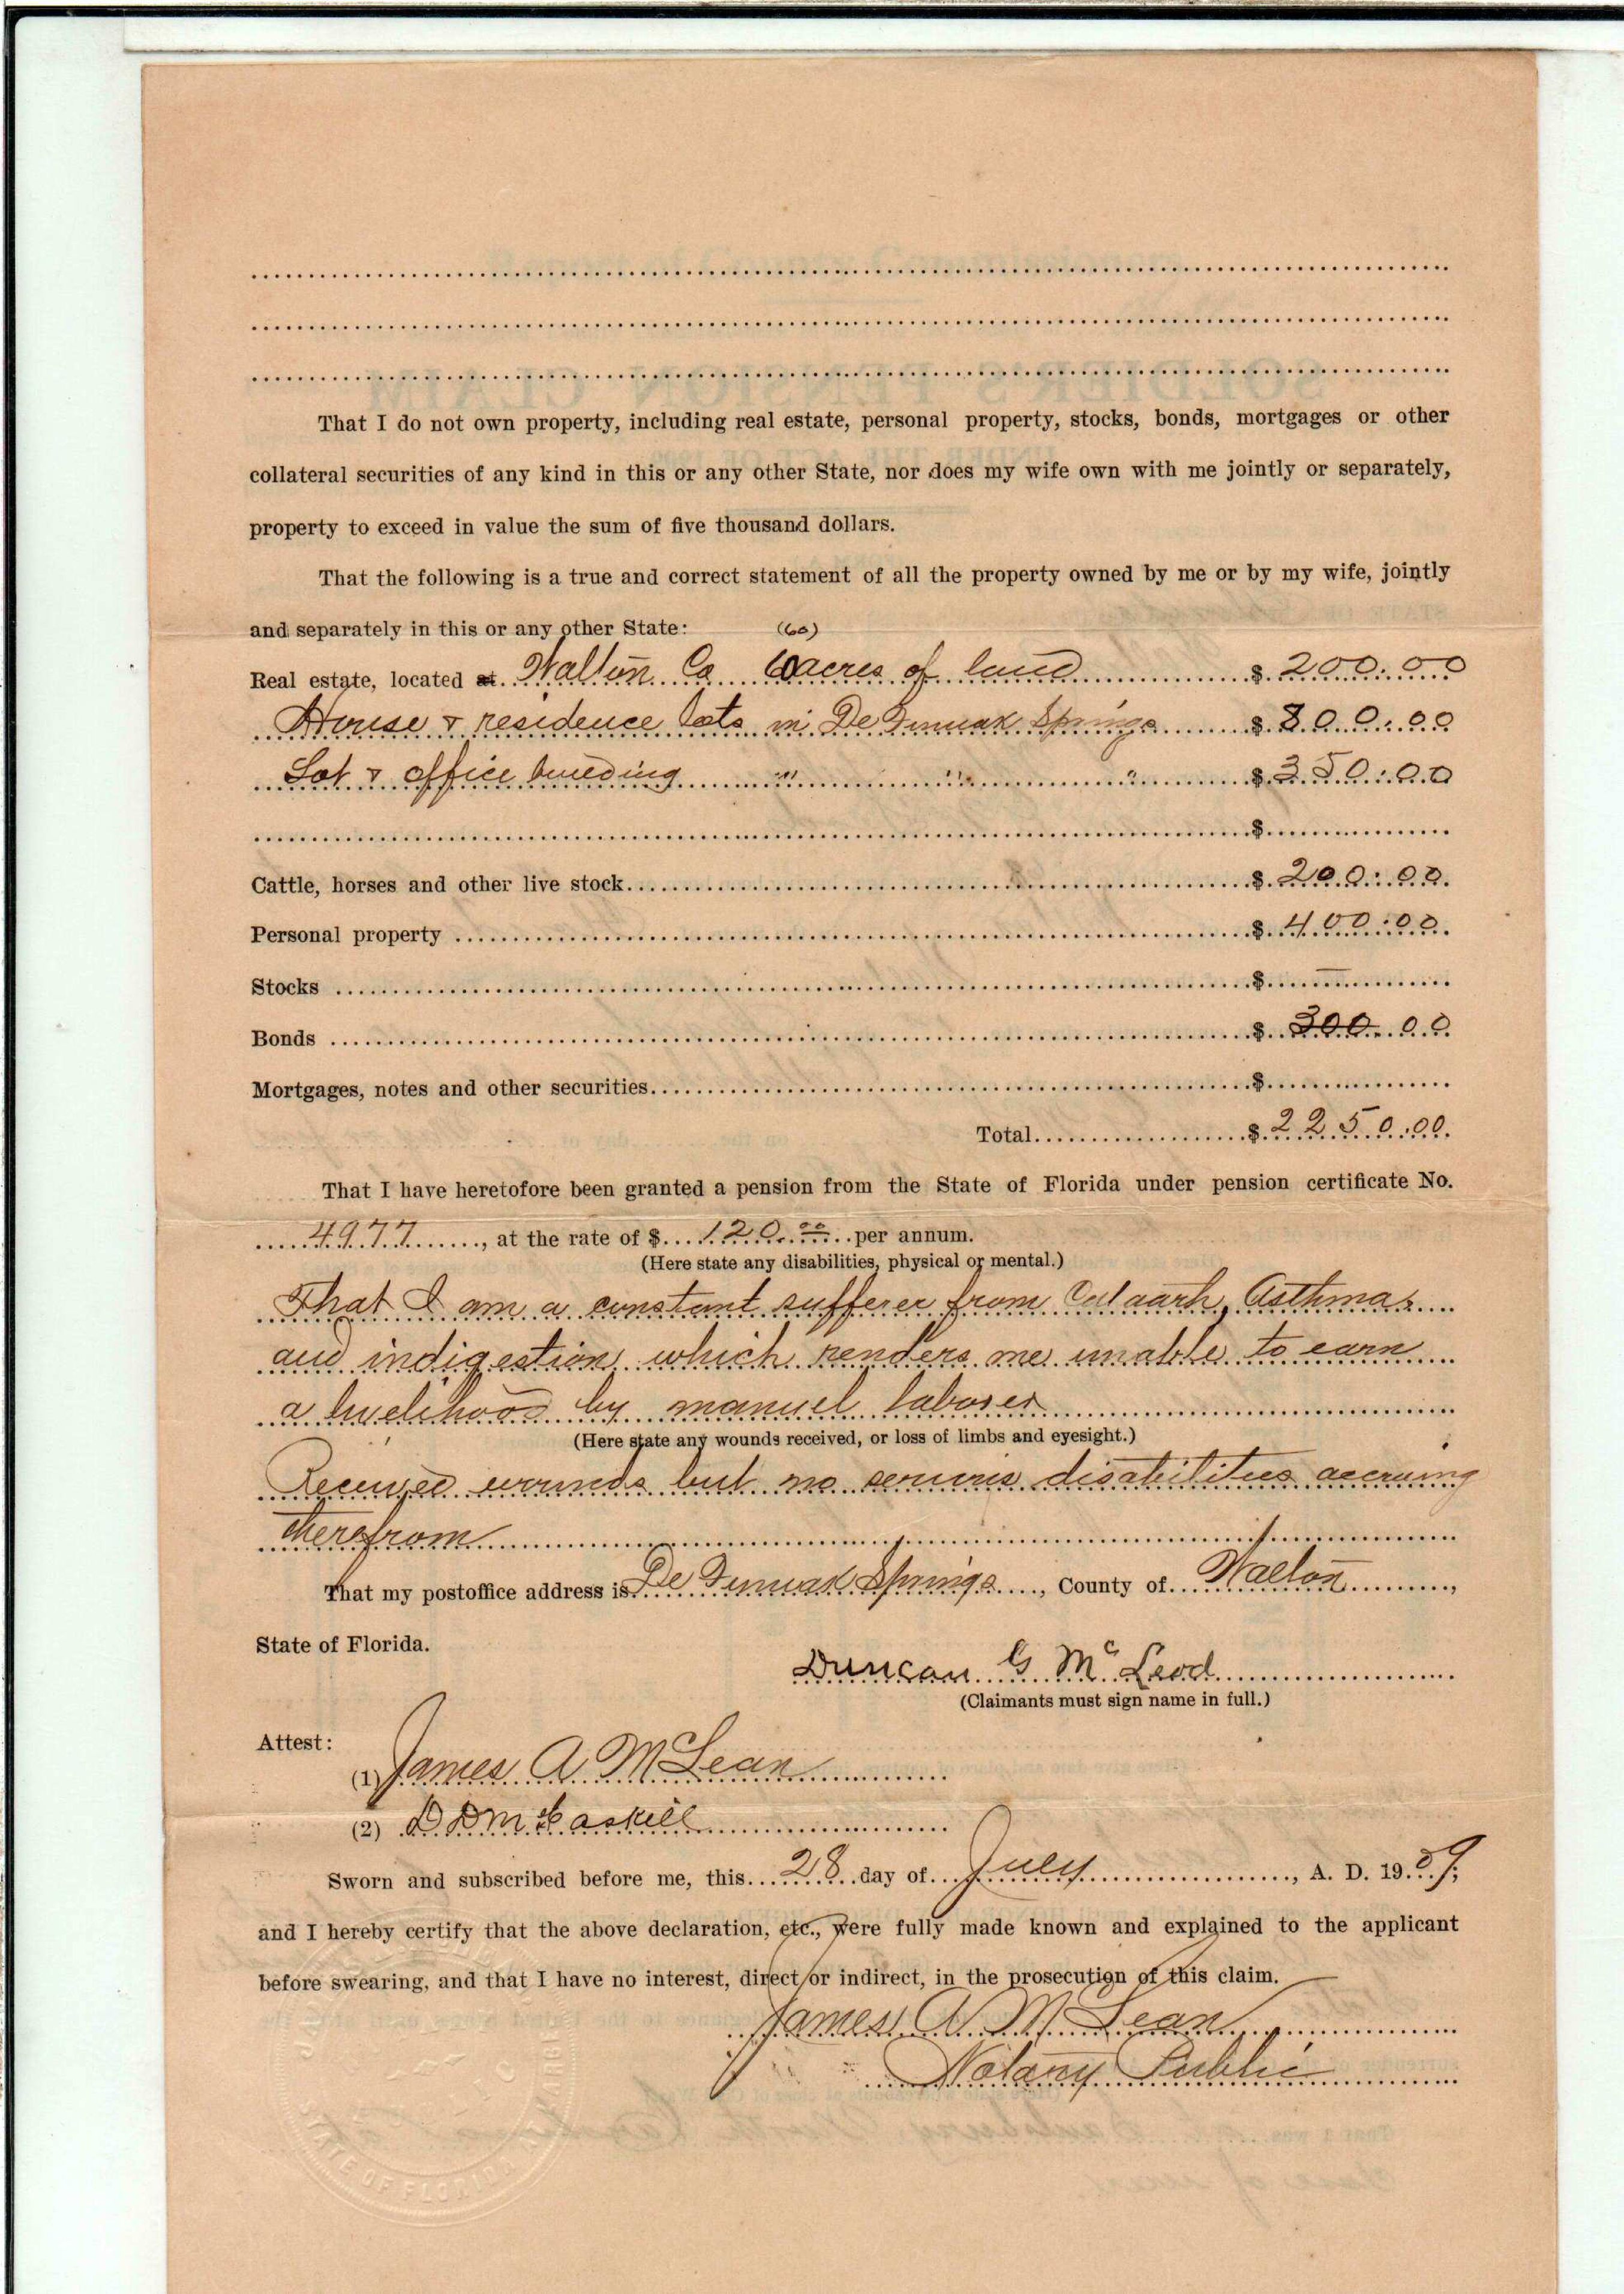 That I do not own property, including real estate, personal property, stocks, bonds, mortgages or other
collateral securities of any kind in this or any other State, nor does my wife own with me jointly or separately,
property to exceed in value the sum of five thousand dollars.
That the following is a true and correct statement of all the property owned by me or by my wife, jointly
and separately in this or any other State: (60)
Real estate, located at Walton Co 60 acres of land $ 200.00
House & residence lots in De Funiak Springs $ 800.00
Lot & office building " " " $ 350.00
$
Cattle, horses and other live stock $ 200.00
Personal property $ 400.00
Stocks $ —
Bonds $ 300.00
Mortgages, notes and other securities $
Total $ 2250.00
That I have heretofore been granted a pension from the State of Florida under pension certificate No.
4977, at the rate of $ 120.00 per annum.
(Here state any disabilities, physical or mental.)
That I am a constant sufferer from Cataarh, Asthma
and indigestion which renders me unable to earn
a livelihood by manuel labores
(Here state any wounds received, or loss of limbs and eyesight.)
Received wounds but no serious disabilities accruing
therefrom
That my postoffice address is De Funiak Springs, County of Walton,
State of Florida.
Duncan G. McLeod
(Claimants must sign name in full.)
Attest:
(1) James A McLean
(2) D D McCaskill
Sworn and subscribed before me, this 28 day of July, A. D. 1909;
and I hereby certify that the above declaration, etc., were fully made known and explained to the applicant
before swearing, and that I have no interest, direct or indirect, in the prosecution of this claim.
James A. McLean
Notary Public
STATE OF FLORIDA